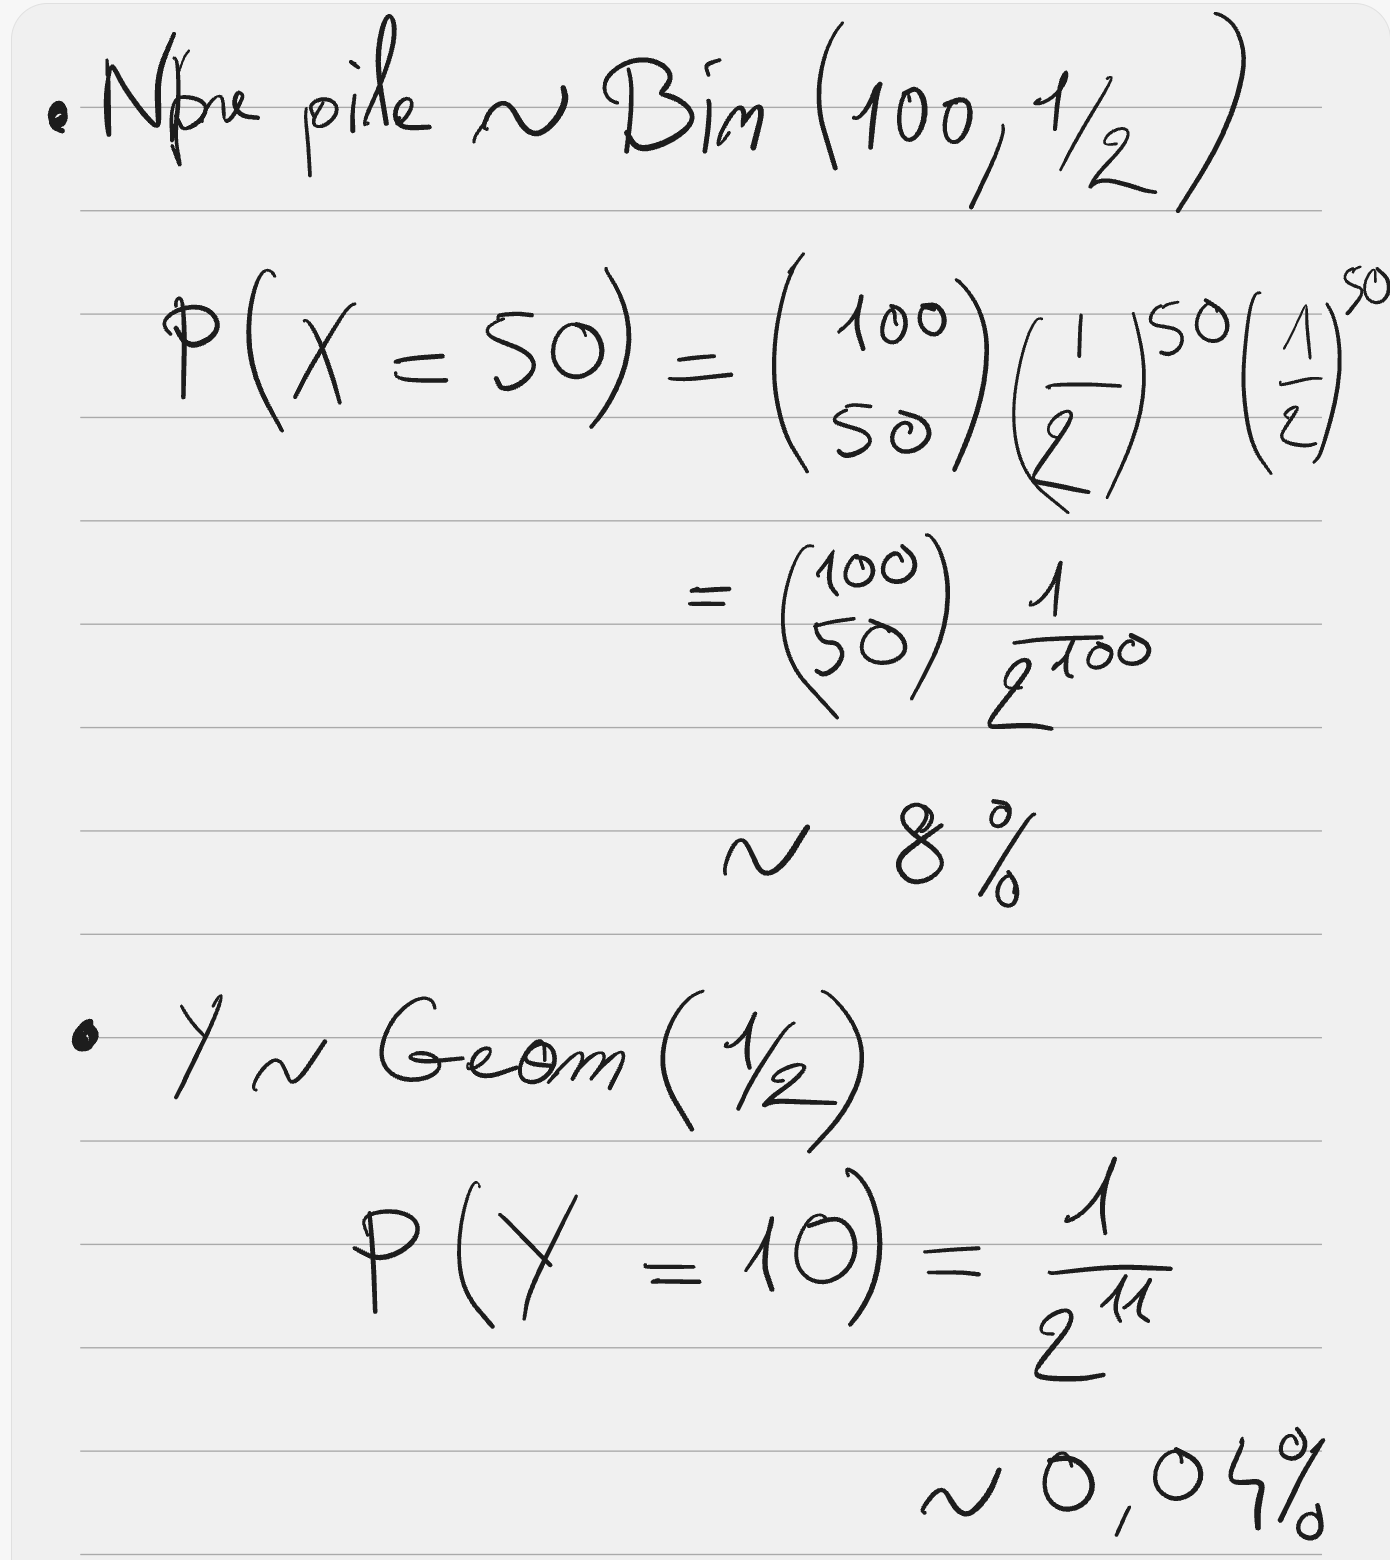 • Nbre pile ~ Bin (100, 1/2)
P(X = 50) = (100 50) (1/2)^50 (1/2)^50
= (100 50) 1/2^100
~ 8 %
• Y ~ Geom (1/2)
P(Y = 10) = 1/2^11
~ 0,04%